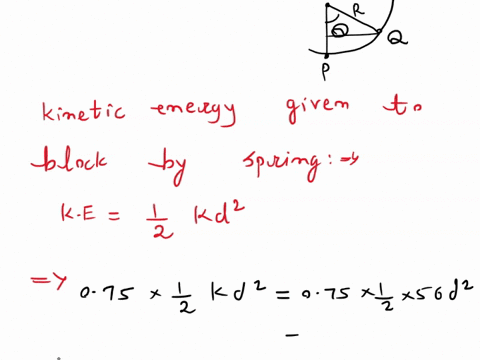 R
Θ
Q
P
kinetic energy given to
block by spring: ⇒
K.E = 1/2 Kd²
=> 0.75 × 1/2 Kd² = 0.75 × 1/2 × 50 d²
=